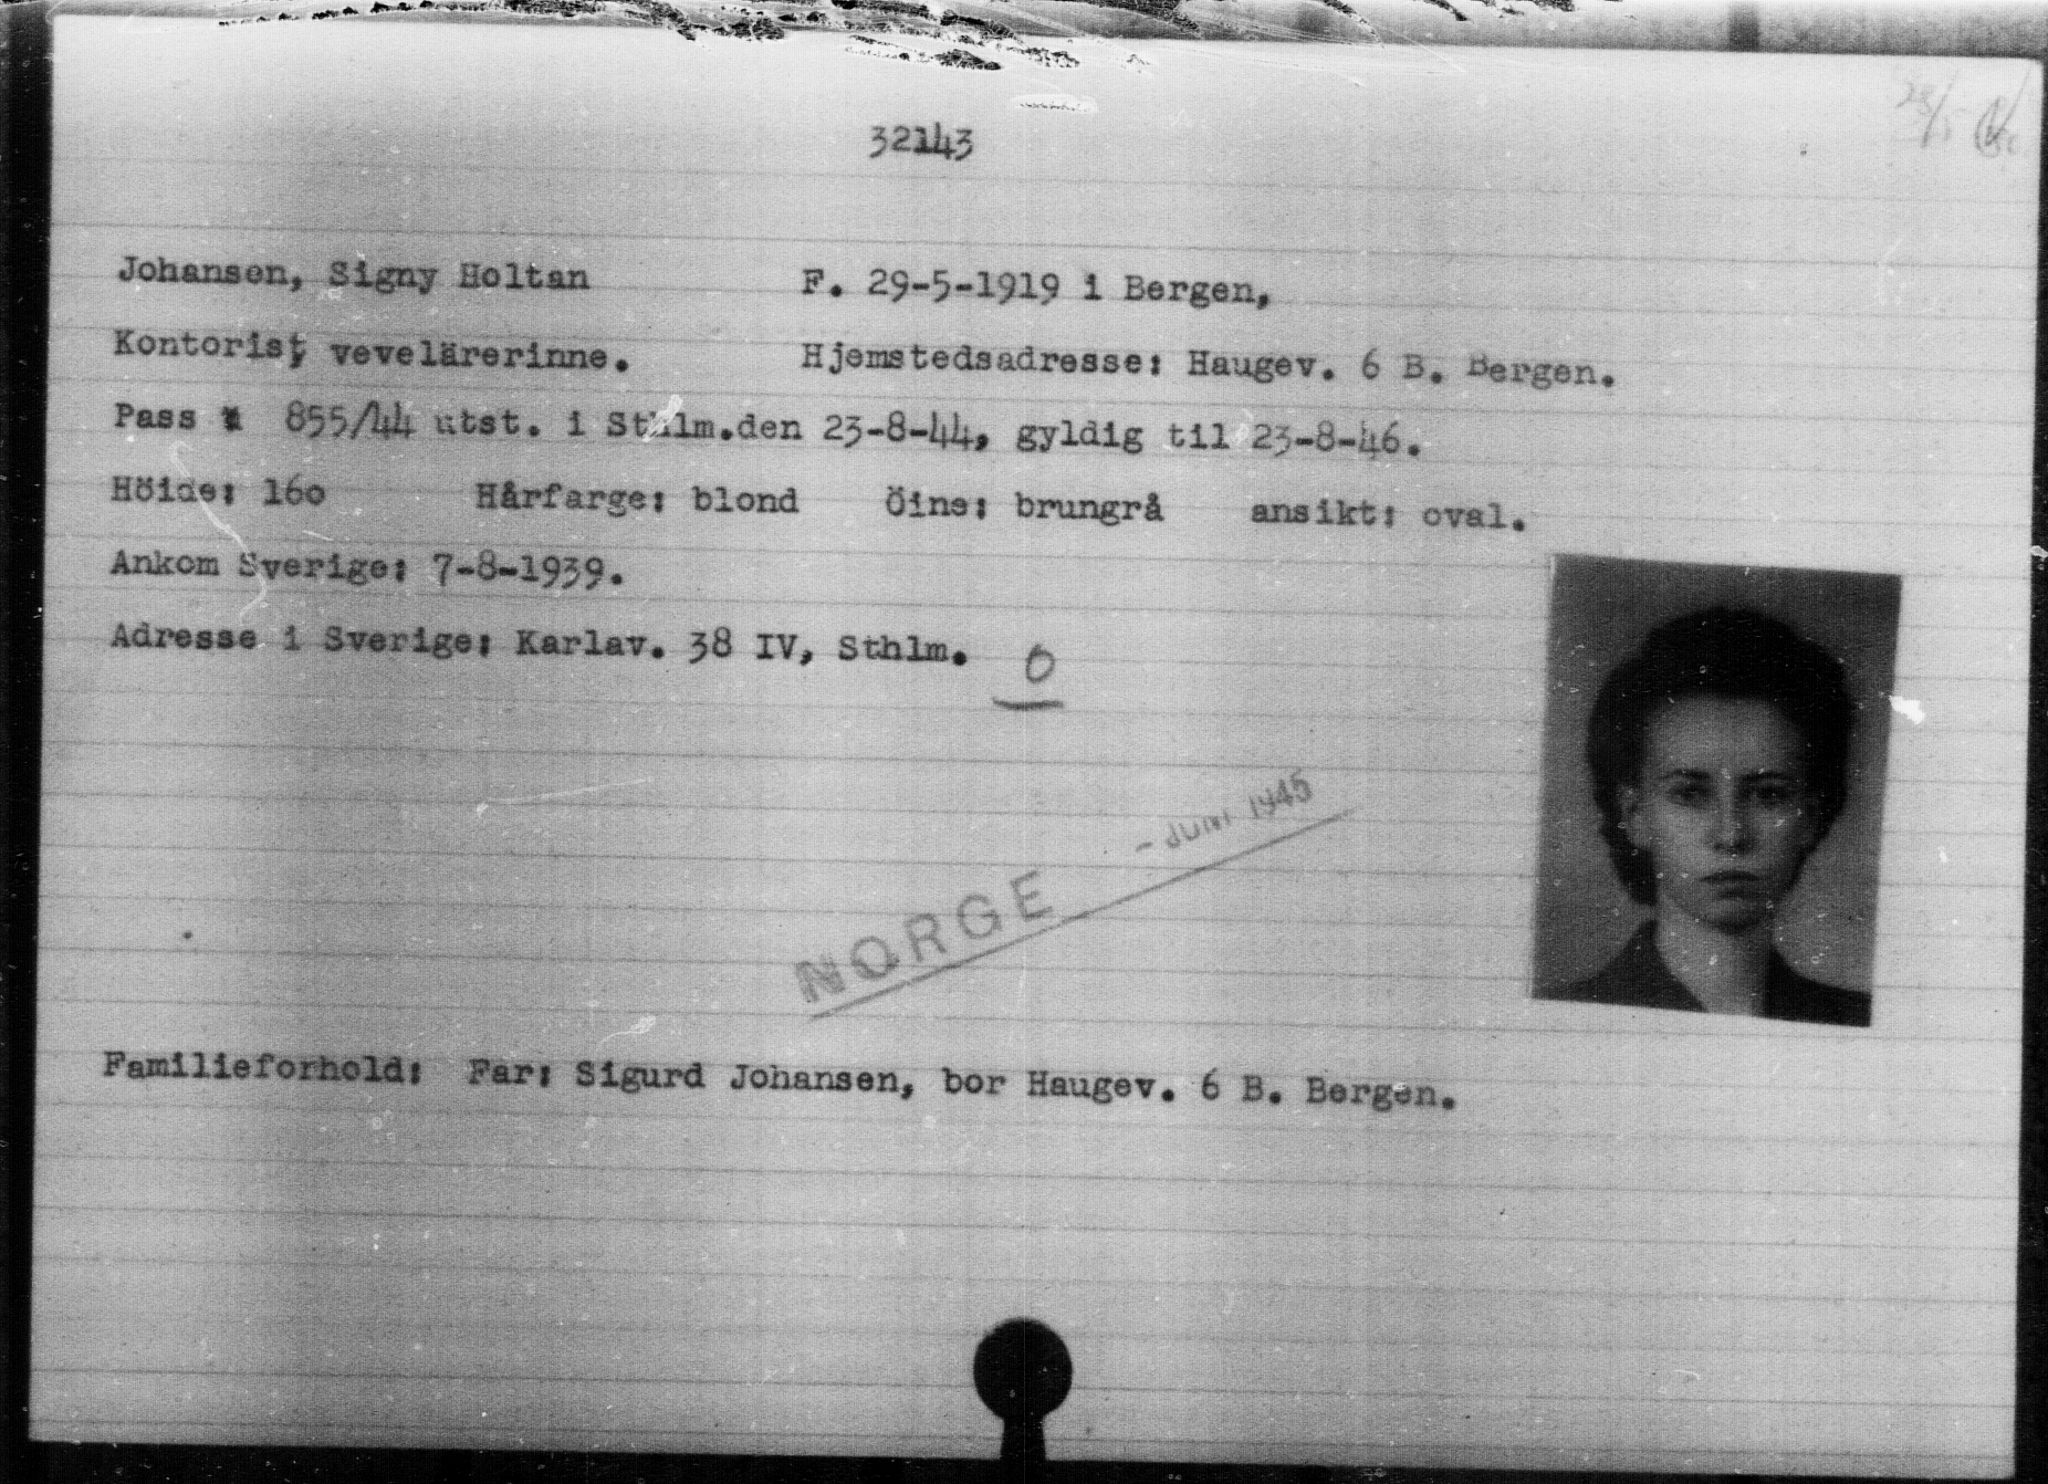 32143
Johansen, Signy Holtan F. 29-5-1919 i Bergen,
Kontorist, vevelärerinne. Hjemstedsadresse: Haugev. 6 B. Bergen.
Pass 855/44 utst. i Sthlm.den 23-8-44, gyldig til 23-8-46.
Höide: 160 Hårfarge: blond Öine: brungrå ansikt: oval.
Ankom Sverige: 7-8-1939.
Adresse i Sverige: Karlav. 38 IV, Sthlm. 0
- JUNI 1945
NORGE
Familieforhold: Far: Sigurd Johansen, bor Haugev. 6 B. Bergen.